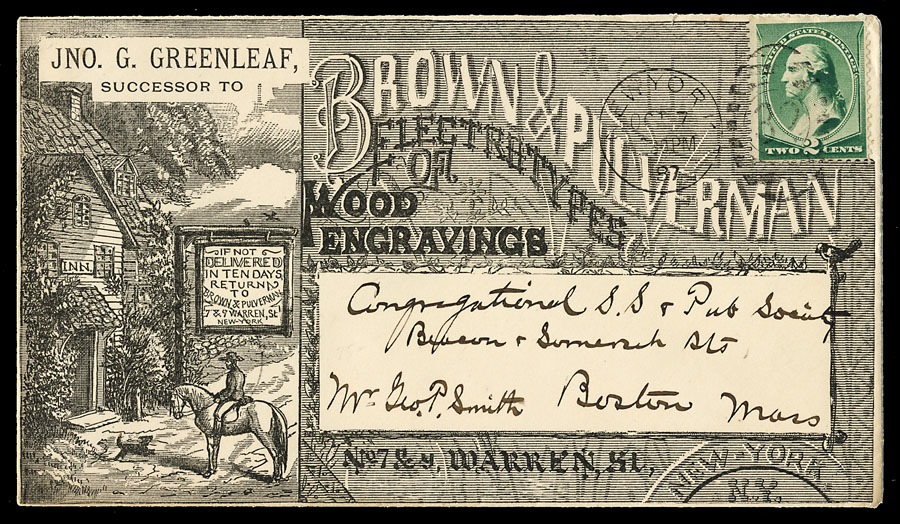 JNO. G. GREENLEAF,
SUCCESSOR TO
BROWN & PULVERMAN
ELECTROTYPES
OF
WOOD
ENGRAVINGS
UNITED STATES POSTAGE
TWO 2 CENTS
NEW YORK
OCT 7
PM
87
INN.
IF NOT
DELIVERED
IN TEN DAYS
RETURN
TO
BROWN & PULVERMAN
7 & 9 WARREN, St
NEW-YORK
Congregational S. S & Pub Society
Beacon & Somerset Sts
Mr Geo. P. Smith Boston Mass
Nos 7 & 9, WARREN, St.,
NEW-YORK
N.Y.